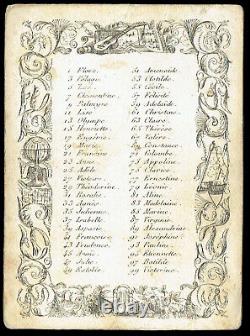 1 Flore. 51 Armande.
3 Pélagie. 53 Clotilde.
5 Zoé. 55 Cécile.
7 Clémentine. 57 Félicité.
9 Palmyre 59 Adelaïde.
11 Lise 61 Christine.
13 Olympe 63 Claire.
15 Henriette. 65 Thérèse
17 Eugénie. 67 Valère.
19 Marie. 69 Constance.
21 Francine 71 Colombe.
23 Anne. 73 Appoline.
25 Adèle 75 Clarice
27 Victoire. 77 Ernestine.
29 Théodorine. 79 Léonie
31 Rosalie. 81 Aline.
33 Agnès 83 Madelaine.
35 Julienne. 85 Marine.
37 Isabelle 87 Virginie.
39 Aspasie. 89 Alexandrine
41 Françoise. 91 Joséphine.
43 Prudence. 93 Pauline.
45 95 Etiennette.
47 Julie. 97 Batilde
49 99 Victorine.